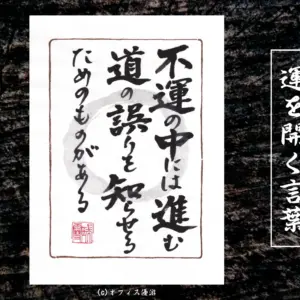 不運の中には進む
道の誤りを知らせる
ためのものがある
運を開く言葉
(c)オフィス湯沼